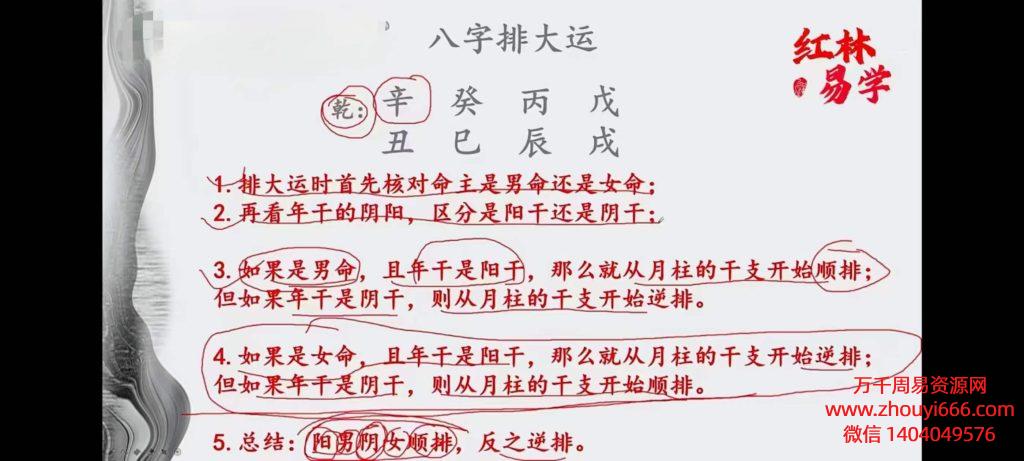 八字排大运
红林
易学
乾：辛 癸 丙 戊
丑 巳 辰 戌
1. 排大运时首先核对命主是男命还是女命；
2. 再看年干的阴阳，区分是阳干还是阴干；
3. 如果是男命，且年干是阳干，那么就从月柱的干支开始顺排；
但如果年干是阴干，则从月柱的干支开始逆排。
4. 如果是女命，且年干是阳干，那么就从月柱的干支开始逆排；
但如果年干是阴干，则从月柱的干支开始顺排。
5. 总结：阳男阴女顺排，反之逆排。
万千周易资源网
www.zhouyi666.com
微信 1404049576